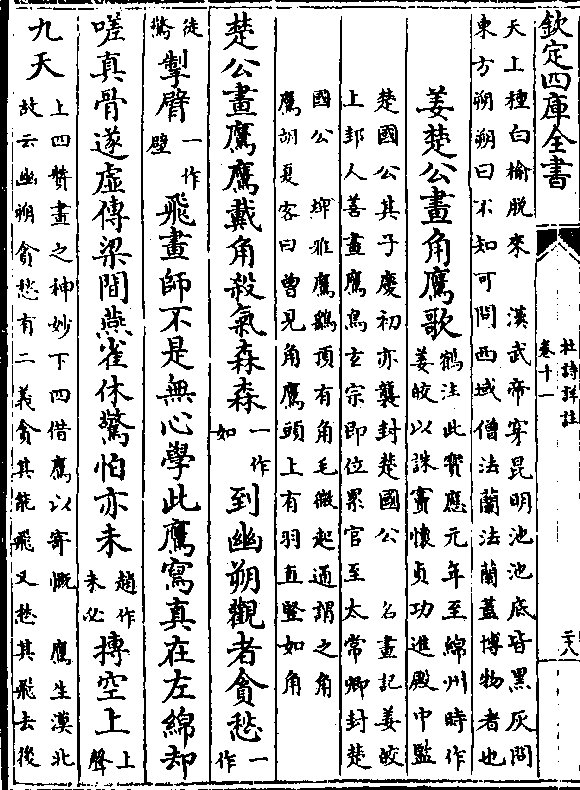 欽定四庫全書
杜詩詳註
卷十一
二十八
天上種白榆脫來　漢武帝穿昆明池池底皆黑灰問
東方朔朔曰不知可問西域僧法蘭法蘭蓋博物者也
姜楚公畫角鷹歌
鶴注此寶應元年至綿州時作
姜皎以誅竇懷貞功進殿中監
楚國公其子慶初亦襲封楚國公　名畫記姜皎
上邽人善畫鷹鳥玄宗即位累官至太常卿封楚
國公　埤雅鷹鷂頂有角毛微起通謂之角
鷹胡夏客曰曾見角鷹頭上有羽直豎如角
楚公畫鷹鷹戴角殺氣森森一作如到幽朔觀者貪愁一作
徒驚掣臂一作壁飛畫師不是無心學此鷹寫真在左綿却
嗟真骨遂虛傳梁間燕雀休驚怕亦未趙作未必摶空上上聲
九天
上四贊畫之神妙下四借鷹以寄慨　鷹生漠北
故云幽朔貪愁有二義貪其能飛又愁其飛去後